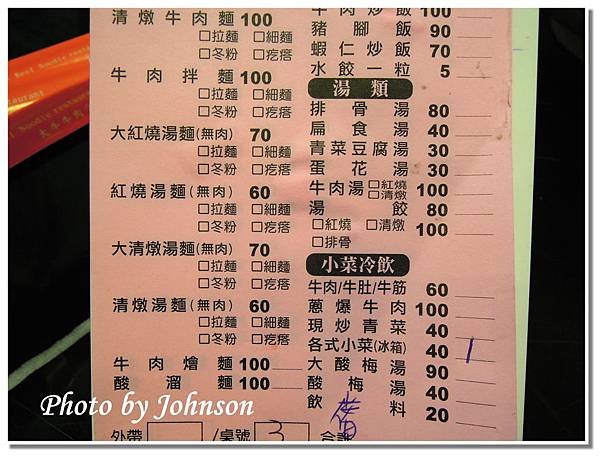 清燉牛肉麵 100
□拉麵 □細麵
□冬粉 □疙瘩
牛肉拌麵 100
□拉麵 □細麵
□冬粉 □疙瘩
大紅燒湯麵(無肉) 70
□拉麵 □細麵
□冬粉 □疙瘩
紅燒湯麵(無肉) 60
□拉麵 □細麵
□冬粉 □疙瘩
大清燉湯麵(無肉) 70
□拉麵 □細麵
□冬粉 □疙瘩
清燉湯麵(無肉) 60
□拉麵 □細麵
□冬粉 □疙瘩
牛肉燴麵 100
酸溜麵 100
外帶 /桌號 3 合計
牛肉炒飯 100
豬腳飯 90
蝦仁炒飯 70
水餃一粒 5
湯類
排骨湯 80
扁食湯 40
青菜豆腐湯 30
蛋花湯 30
牛肉湯 □紅燒 □清燉 100
湯餃 80
□紅燒 □清燉 100
□排骨
小菜冷飲
牛肉/牛肚/牛筋 60
蔥爆牛肉 100
現炒青菜 40
各式小菜(冰箱) 40 1
大酸梅湯 90
酸梅湯 40
飲料 20
Beef Noodle restaurant
大牛牛肉
Photo by Johnson